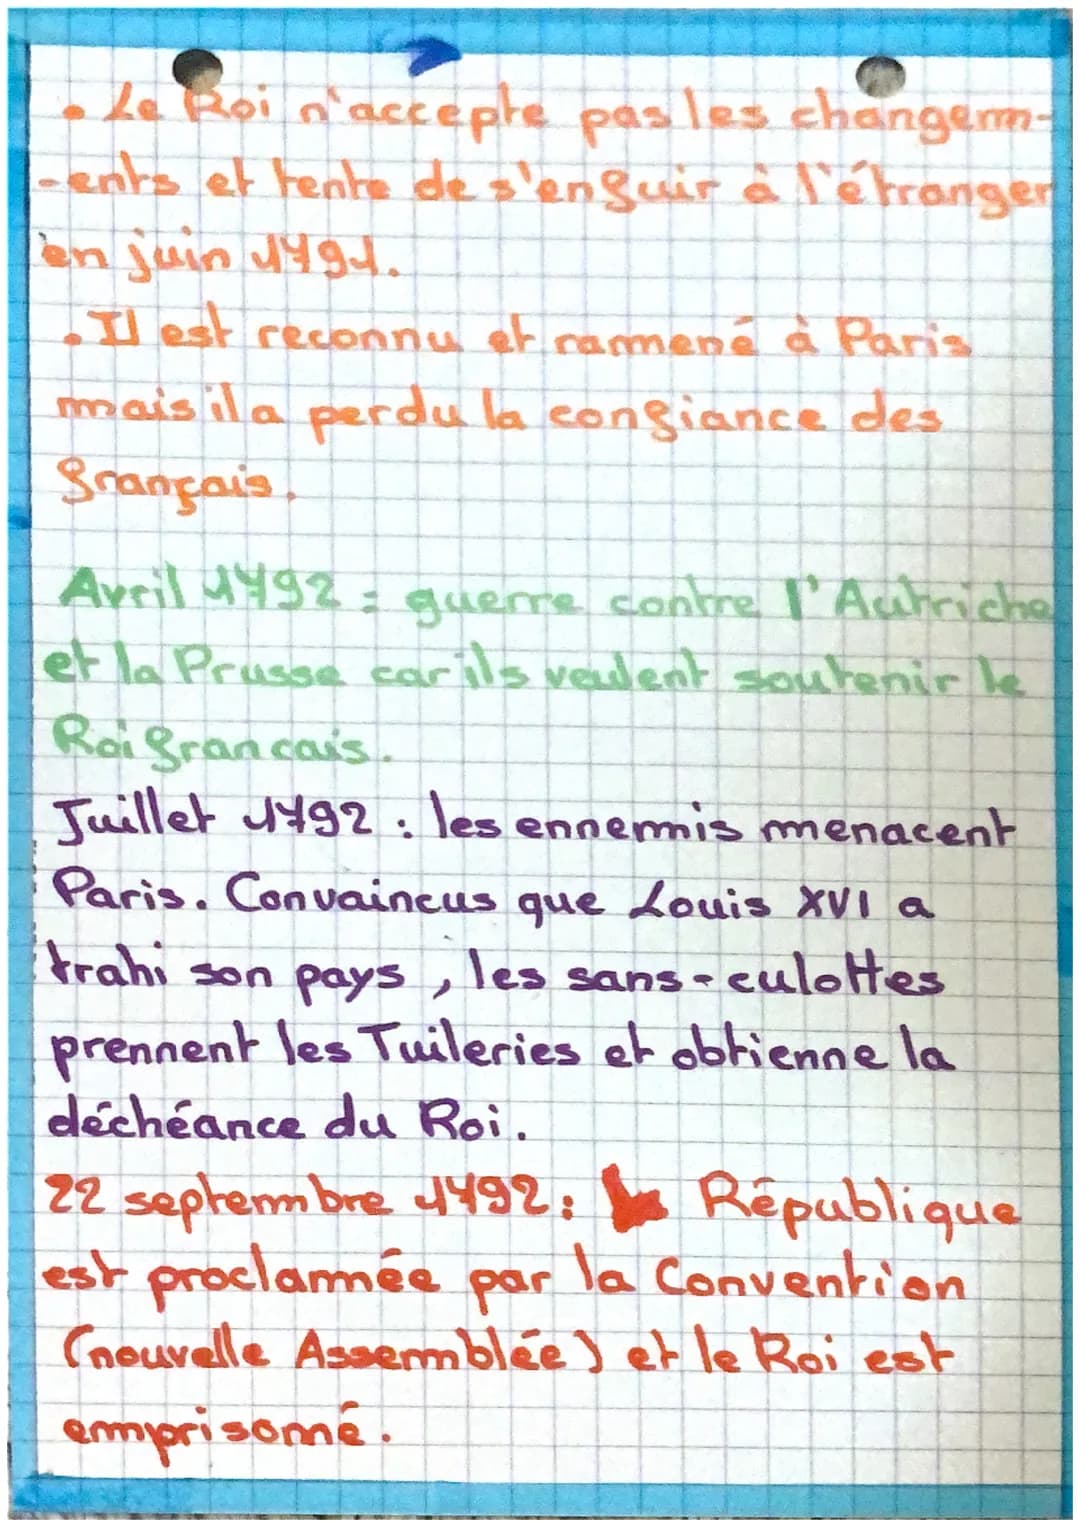 • Le Roi n'accepte pas les changem-
-ents et tente de s'enfuir à l'étranger
en juin 1791.
• Il est reconnu et ramené à Paris
mais il a perdu la confiance des
français.
Avril 1792 : guerre contre l'Autriche
et la Prusse car ils veulent soutenir le
Roi francais.
Juillet 1792 : les ennemis menacent
Paris. Convaincus que Louis XVI a
trahi son pays, les sans-culottes
prennent les Tuileries et obtienne la
déchéance du Roi.
22 septembre 1792 : République
est proclamée par la Convention
(nouvelle Assemblée) et le Roi est
emprisonné.